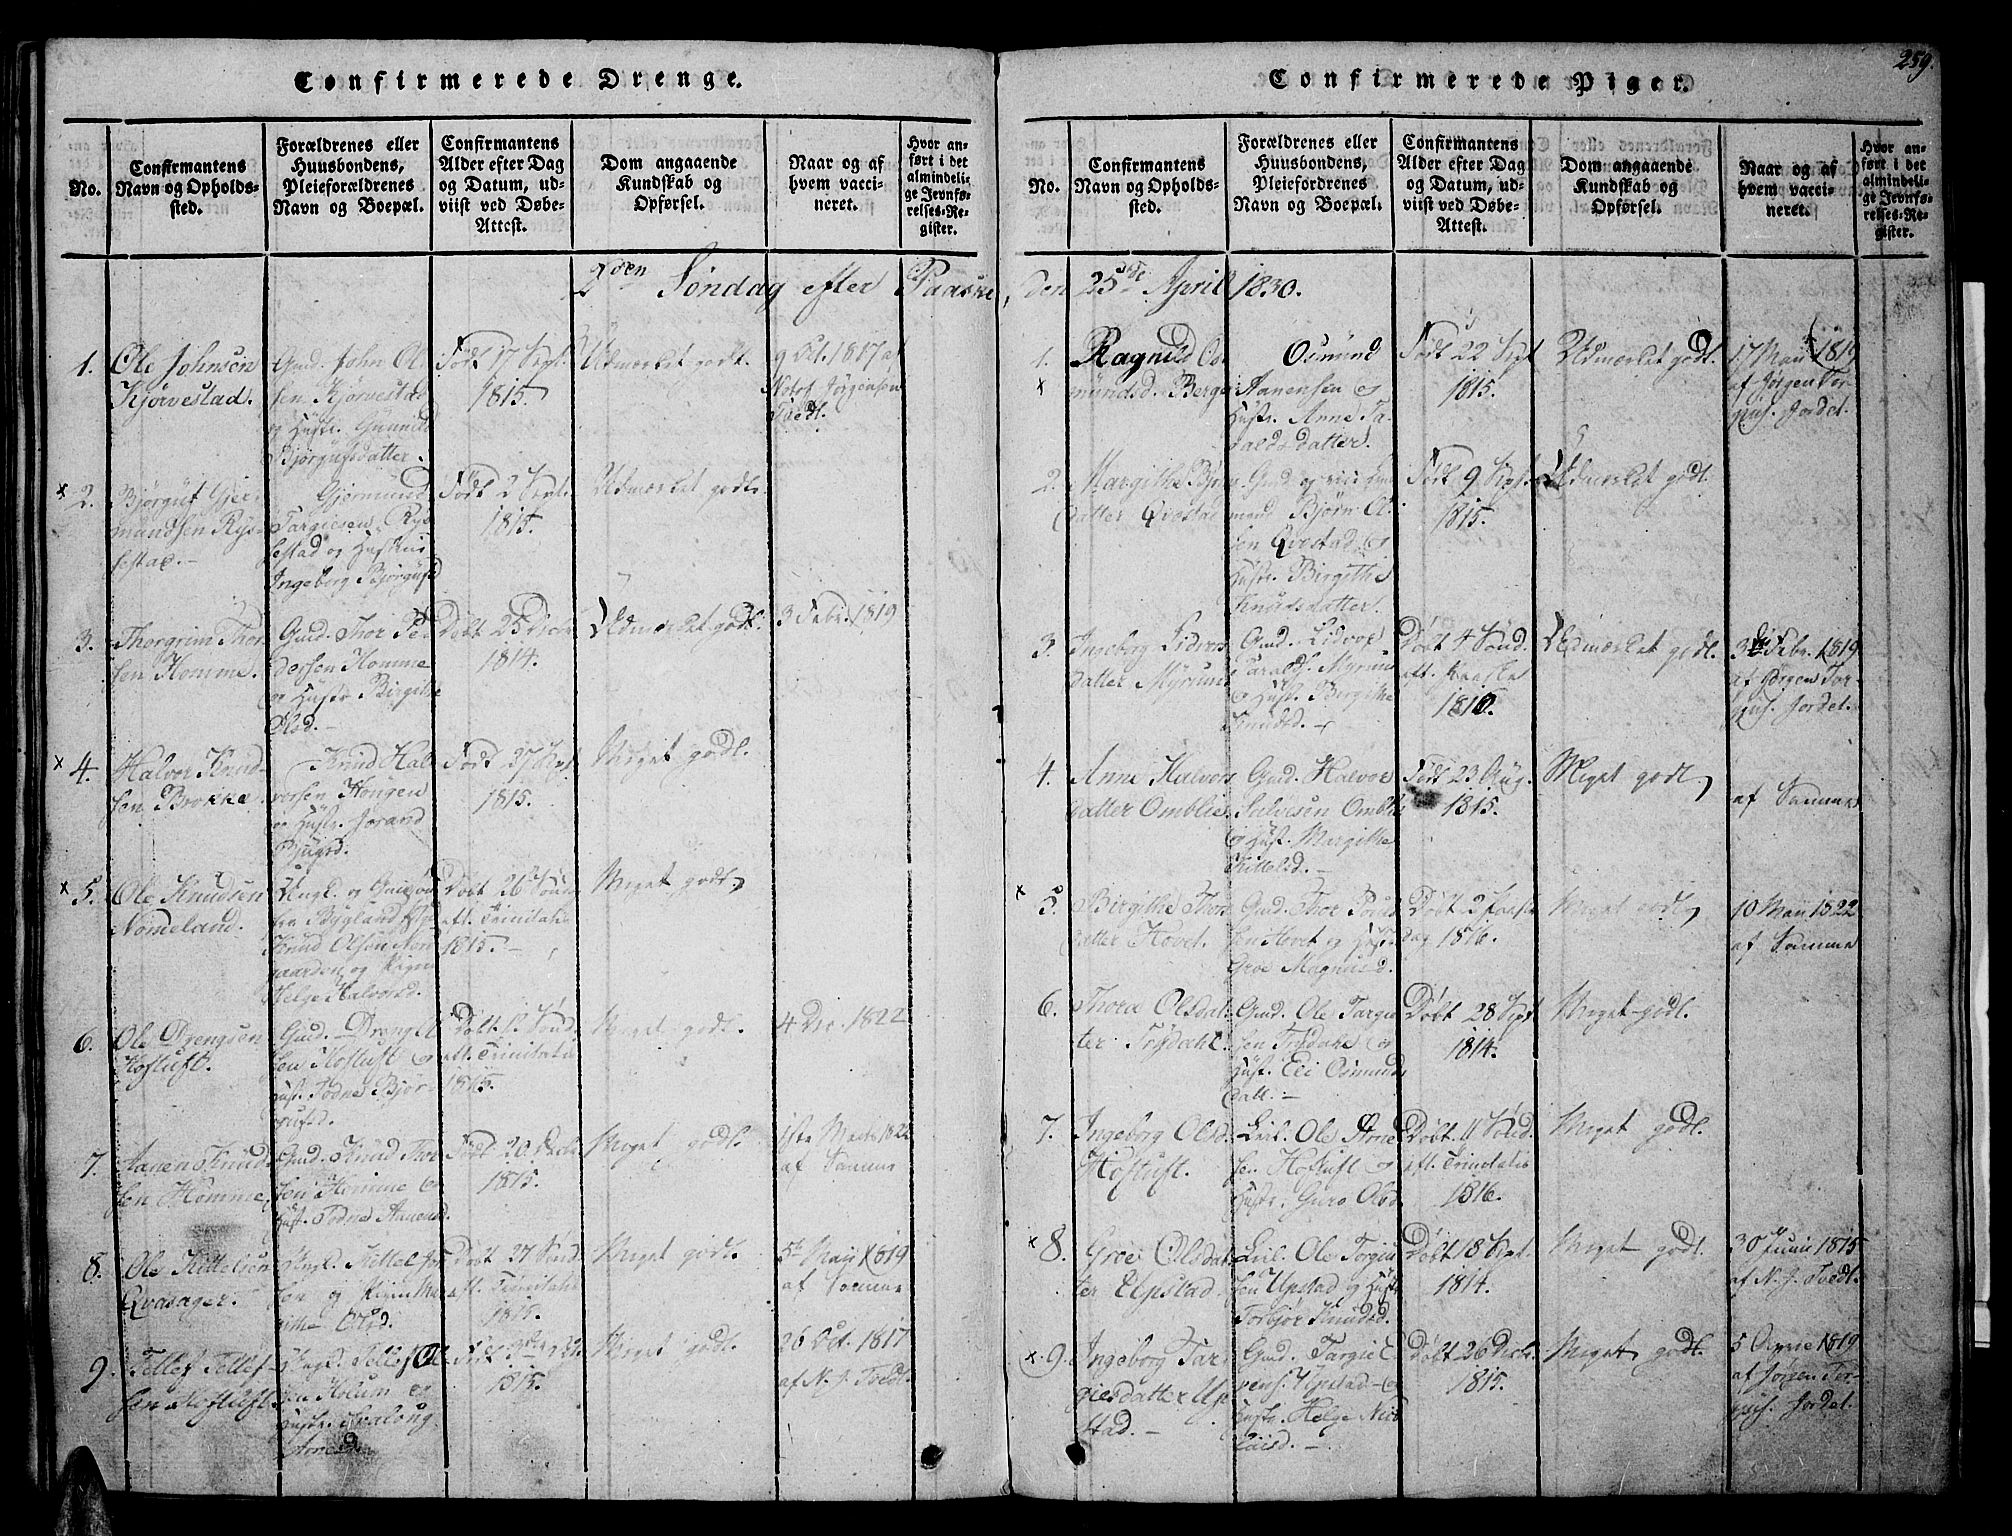 259.
Confirmerede Drenge.
No.
Confirmantens
Navn og Opholds-
sted.
Forældrenes eller
Huusbondens,
Pleieforældrenes
Navn og Boepæl.
Confirmantens
Alder efter Dag
og Datum, ud-
viist ved Døbe-
Attest.
Dom angaaende
Kundskab og
Opførsel.
Naar og af
hvem vacci-
neret.
Hvor an-
ført i det
almindeli-
ge Jevnfø-
relses-Re-
gister.
2den Søndag efter Paaske,
1.
Ole Johnsen
Kjørvestad.
Gmd. John Ol-
sen Kjørvestad
og Hustr. Gunnild
Bjørgufsdatter.
Født 17 Sept.
1815.
Udmærket godt.
9 Oct. 1817 af
Jørgensen
Tvedt.
x 2.
Bjørguf Gjer-
mundsen Rys-
sestad.-
Gjermund
Targiesen Rys-
sestad og
Ingeborg Bjørgufsd
Født 2 Sept.
1815.
Udmærket godt.
3.
Thorgrim Thor-
sen Homme.
Gmd. Thor Pe-
dersen Homme
og Hustr. Birgithe
Olsd.-
Døbt 25 Decbr
1814.
Udmærket godt.
3 Febr. 1819
x 4.
Halvor Knud-
sen Brokke.
Knud Hal-
vorsen Hougen
og Hustr. Jorand
Bjugsd.
Født 27 Sept.
1815.
Meget godt.
x 5.
Ole Knudsen
Nomeland.
Ungk. og
Bygland
Knud Olsen Nord-
gaarden og Pigen
Helge Halvorsd.
Døbt 26 Sønd.
eft. Trinitatis
1815.-
Meget godt
6.
Ole Drengsen
Hoftuft.
Gmd. Dreng Ol-
sen Hoftuft og
Hust. Todne Bjør-
gufsd.
Døbt 1. Sønd.
eft. Trinitatis
1815.
Meget godt.
4 Dec. 1822
7.
Aanen Knud-
sen Homme.
Gmd. Knud Thor-
sen Homme og
Hust. Todne Aanensd.
Født 20 Decbr
1815.
Meget godt.
1ste Marts 1822
af Samme
8.
Ole Kittelsen
Qvasager.
Ungk. Kittel
og Pigen Mar-
githe Olsd.
Døbt 27 Sønd.
eft. Trinitatis
1815.
Meget godt.
5te Maii 1819
af Samme
9.
Tellef Tellef-
sen Hoftuft.
Ungk. Tellef Ol-
sen Holum og
Hustr. Svaloug
Arnesd.
1815.
Meget godt.
26 Oct. 1817
af N. J. Tvedt.
Confirmerede Piger.
No.
Confirmantens
Navn og Opholds-
sted.
Forældrenes eller
Huusbondens,
Pleiefordrenes
Navn og Boepæl.
Confirmantens
Alder efter Dag
og Datum, ud-
viist ved Døbe-
Attest.
Dom angaaende
Kundskab og
Opførsel.
Naar og af
hvem vacci-
neret.
Hvor an-
ført i det
almindeli-
ge Jevnfø-
relses-Re-
gister.
den 25de April 1830.
1.
x
Ragnild Os-
mundsd. Berge
Osmund
Aanensen og
Hustr. Anne Ta-
raldsdatter.
Født 22 Sept
1815.
Udmærket godt.
17 Maii 1819
af Jørgen Tor-
Jordet.
2.
Margithe Bjørns-
datter Qvestad
Gmd. og
mand Bjørn Ol-
sen Qvestad og
Hustr. Birgithe
Knudsdatter.
Født 9 Sept.
1815.
Udmærket godt.
3.
Ingeborg Lidvors-
datter Myrum
Gmd. Lidvor
Taralds. Myrum
og Hustr. Birgithe
Knudsd.-
Døbt 4 Sønd.
eft. Paaske
Udmærket godt.
3 Febr. 1819
af Jørgen Tor-
Jordet.
4.
Anne Halvors-
datter Omblie
Gmd. Halvor
Salvesen Omblie
og Hust. Margithe
Kittelsd.-
Født 23 Aug.
1815.
Meget godt
af Samme
x
5.
Birgithe Thors-
datter Hovet.
Gmd. Thor
sen Hovet og Hustr
Groe Magnusd.
Døbt 2 Paaske-
dag 1816.
Meget godt
10 Maii 1822
af Samme
6.
Thora Olsdat-
ter Trydahl.
Gmd. Ole Targie-
sen Trydahl og
Hust. Eli Osmunds-
datt.-
Døbt 28 Sept
1814.
Meget godt.
7.
Ingeborg Olsd.
Hoftuft.
Ole Arne-
sen Hoftuft og
Hustr. Guro Olsd.
Døbt 11 Sønd.
eft. Trinitatis
1816.
Meget godt.
x 8.
Groe Olsdat-
ter Upstad.
Ole Torgiu-
sen Upstad og Hustr
Torbjør Knudsd.
Døbt 18 Sept.
1814.
Meget godt.
30 Junii 1815
af N. J. Tvedt.
x 9.
Ingeborg Tar-
giesdatter Up-
stad.-
Gmd. Targie
Upstad og
Hustr. Helge Nico-
laisd.-
Døbt 26 Decbr.
1815.
Meget godt.
5 1819
af Jørgen Tor-
Jordet.